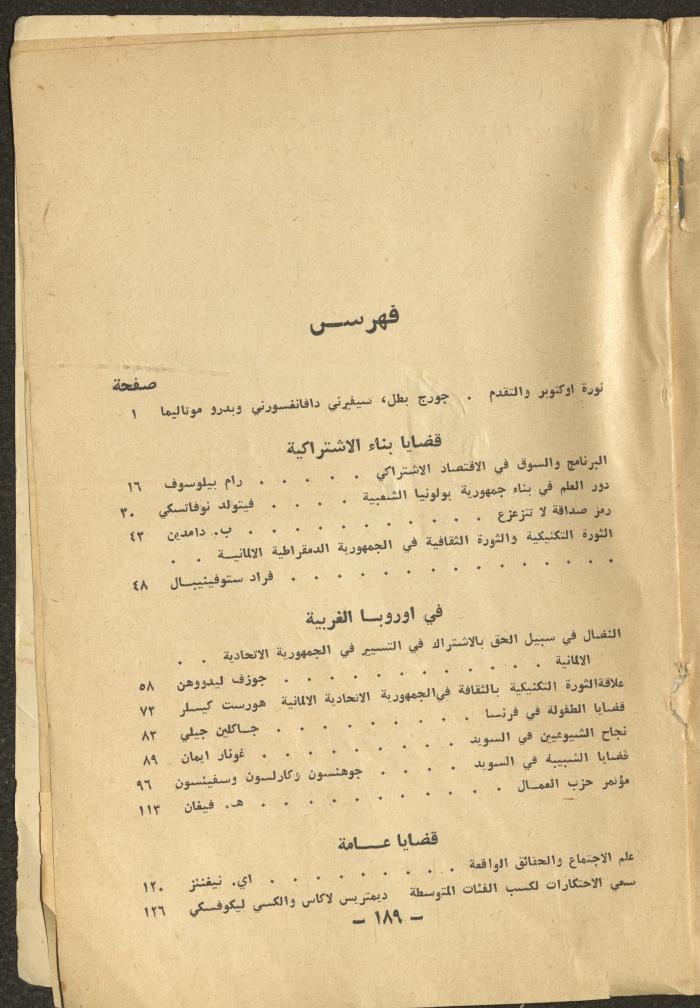 فهرســس
صفحة
ثورة اوكتوبر والتقدم . جورج بطل، سيفيرني دافانفسورني وبدرو موتاليما ١
قضايا بناء الاشتراكية
البرنامج والسوق في الاقتصاد الاشتراكي . . . . . رام بيلوسوف ١٦
دور العلم في بناء جمهورية بولونيا الشعبية . . . . فيتولد نوفاتسكي ٣٠
رمز صداقة لا تتزعزع . . . . . . . . . . . ب. دامدين ٤٣
الثورة التكنيكية والثورة الثقافية في الجمهورية الدمقراطية الالمانيــة . .
. . . . . . . . . . . . . . . فراد ستوفينيبـال ٤٨
في اوروبـا الغربية
النضال في سبيل الحق بالاشتراك في التسيير في الجمهورية الاتحادية . .
الالمانية . . . . . . . . . . . . جوزف ليدووهن ٥٨
علاقة الثورة التكنيكية بالثقافة في الجمهورية الاتحادية الالمانية هورست كيسلر ٧٣
قضايا الطفولة في فرنسا . . . . . . . . . جـاكلين جيلي ٨٣
نجاح الشيوعيين في السويد . . . . . . . . . غونار ايمان ٨٩
قضايا الشبيبة في السويد . . . . جوهنسون وكارلسون وسفينسون ٩٦
مؤتمر حزب العمـال . . . . . . . . . . . هـ. فيغان ١١٣
قضايا عــامة
علم الاجتماع والحقائق الواقعة . . . . . . . . . اي. نيغننز ١٢٠
سعي الاحتكارات لكسب الفئات المتوسطة ديمتريس لاكاس والكسي ليكوفسكي ١٢٦
– ١٨٩ –